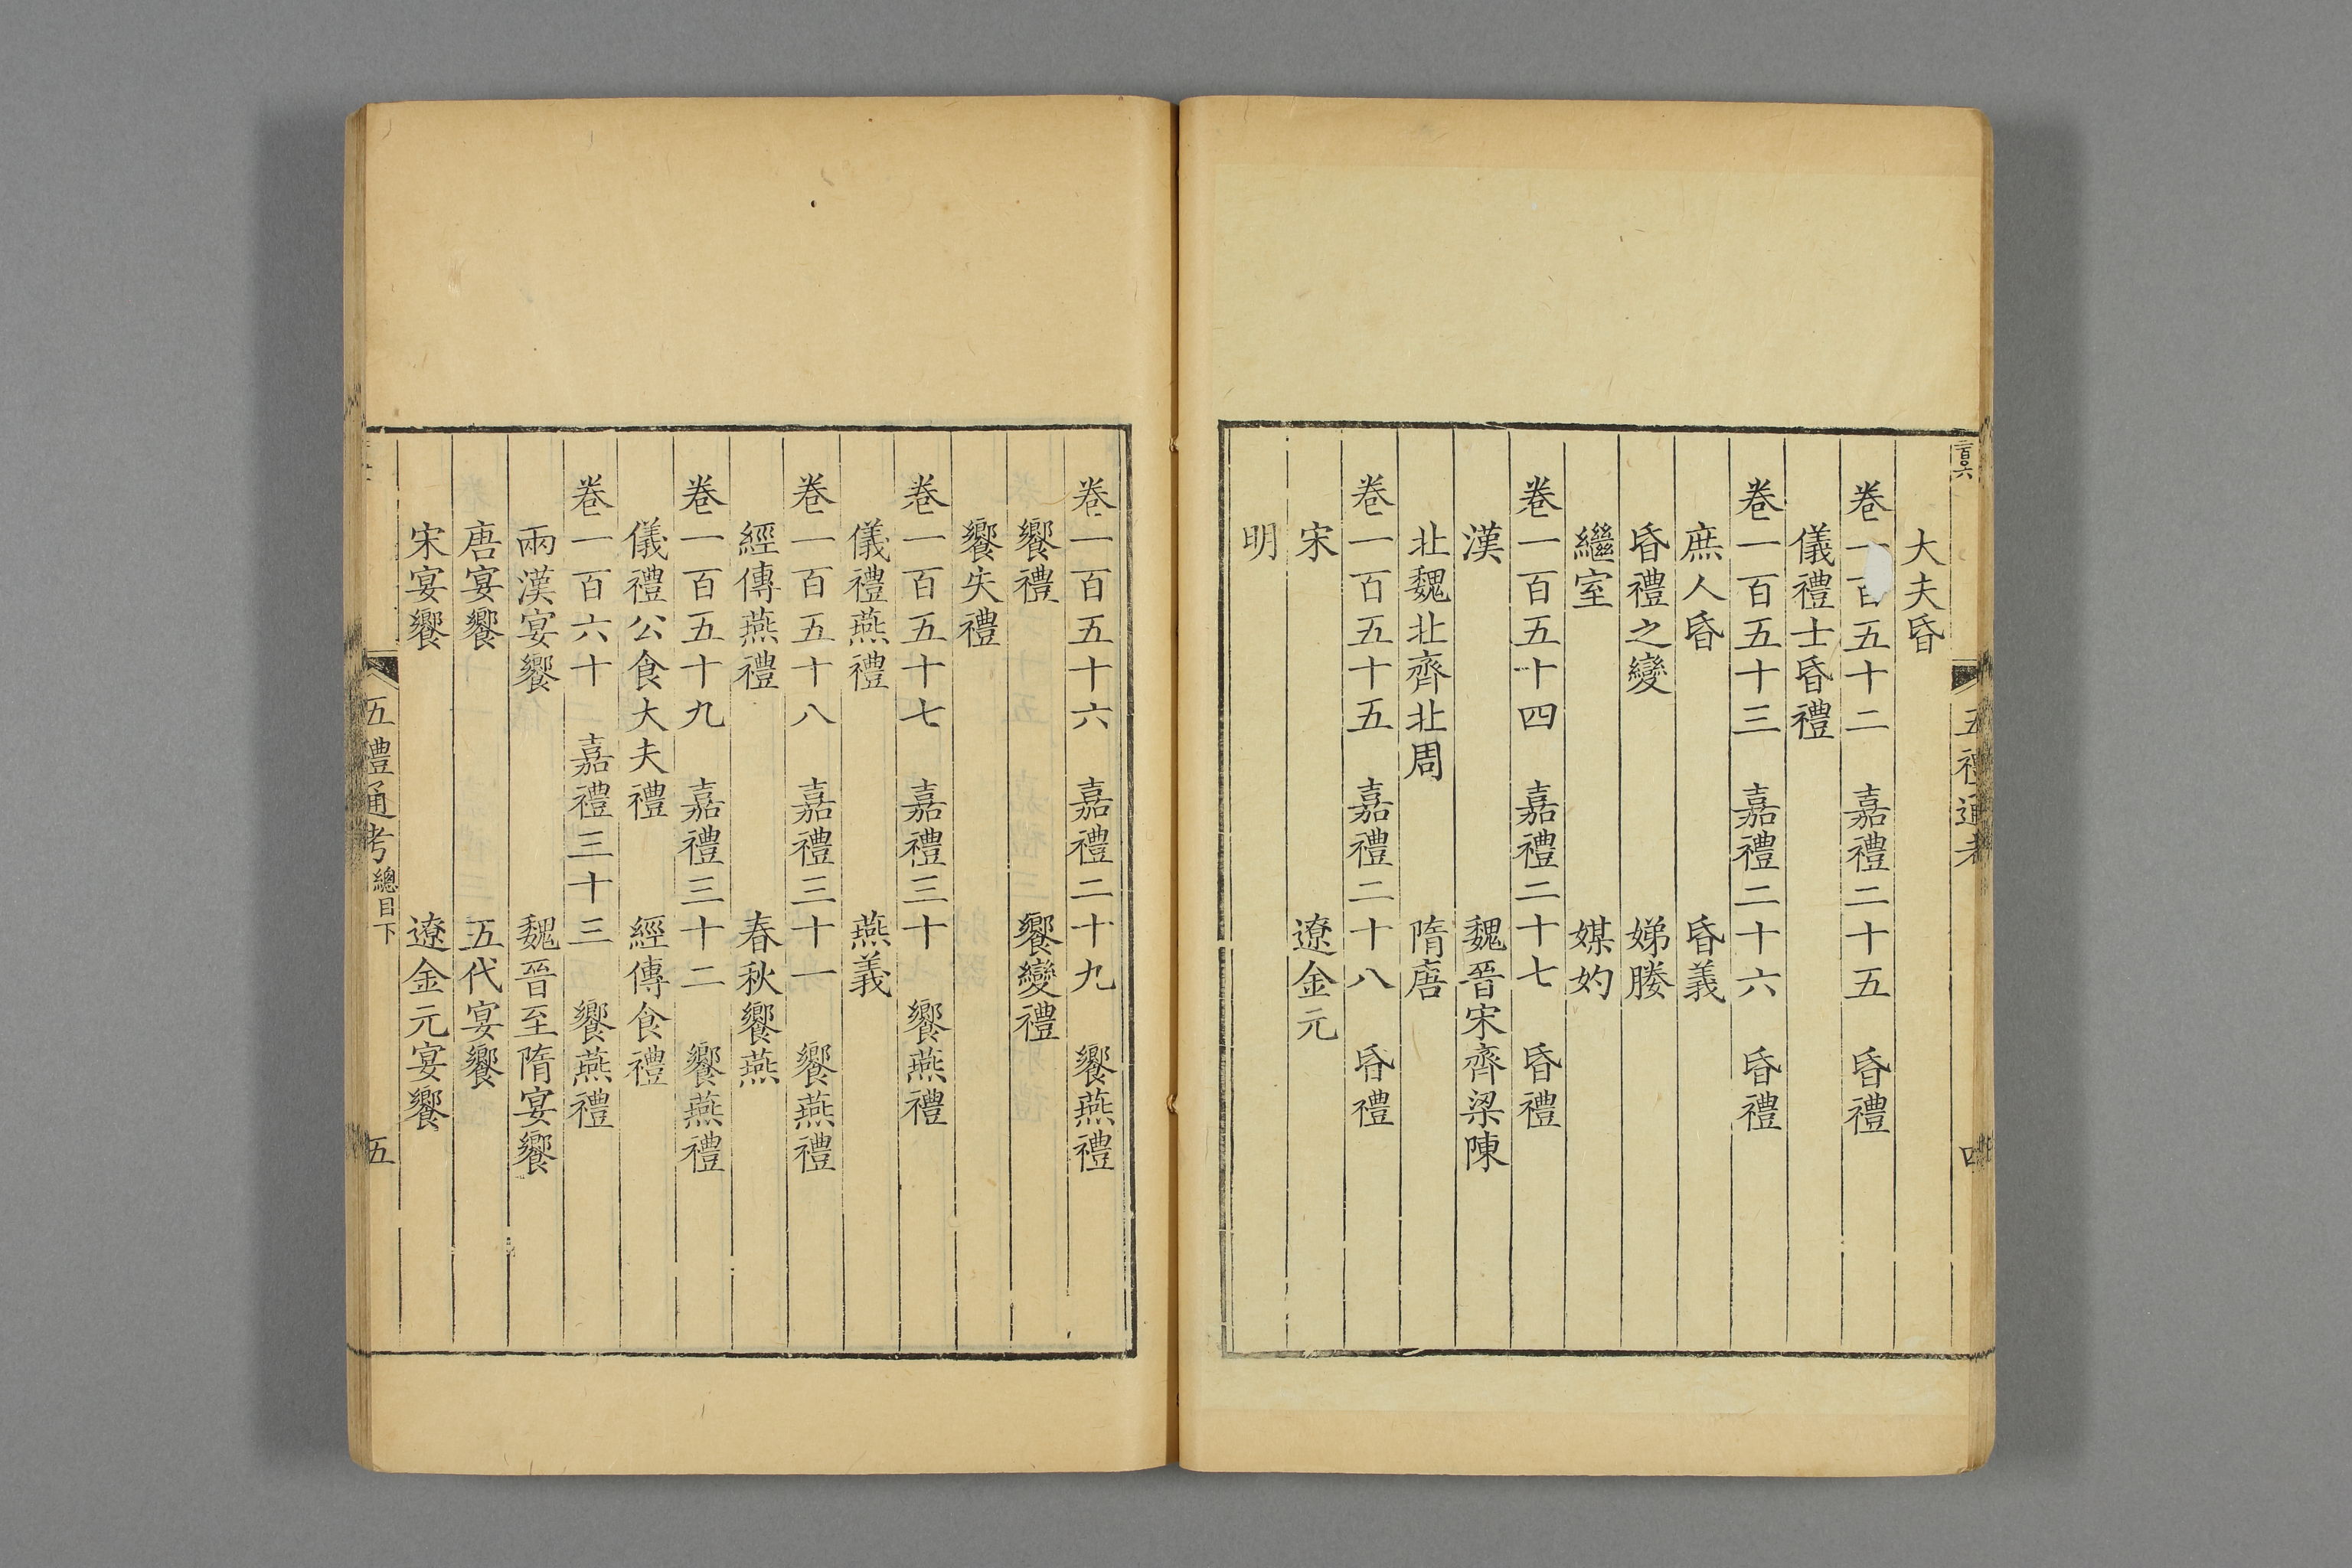 大夫昏
卷一百五十二　嘉禮二十五　昏禮
儀禮士昏禮
卷一百五十三　嘉禮二十六　昏禮
庶人昏　昏義
昏禮之變　娣媵
繼室　媒妁
卷一百五十四　嘉禮二十七　昏禮
漢　魏晉宋齊梁陳
北魏北齊北周　隋唐
卷一百五十五　嘉禮二十八　昏禮
宋　遼金元
明
五禮通考
四
卷一百五十六　嘉禮二十九　饗燕禮
饗禮　饗變禮
饗失禮
卷一百五十七　嘉禮三十　饗燕禮
儀禮燕禮　燕義
卷一百五十八　嘉禮三十一　饗燕禮
經傳燕禮　春秋饗燕
卷一百五十九　嘉禮三十二　饗燕禮
儀禮公食大夫禮　經傳食禮
卷一百六十　嘉禮三十三　饗燕禮
兩漢宴饗　魏晉至隋宴饗
唐宴饗　五代宴饗
宋宴饗　遼金元宴饗
五禮通考 總目下　五